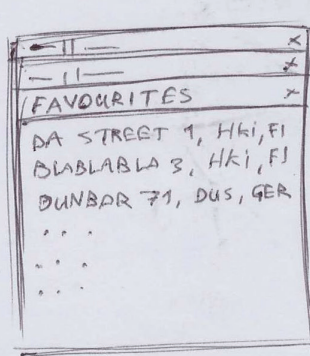 FAVOURITES
DA STREET 1, HKi, FI
BLABLABLA 3, HKi, FI
DUNBAR 71, DUS, GER